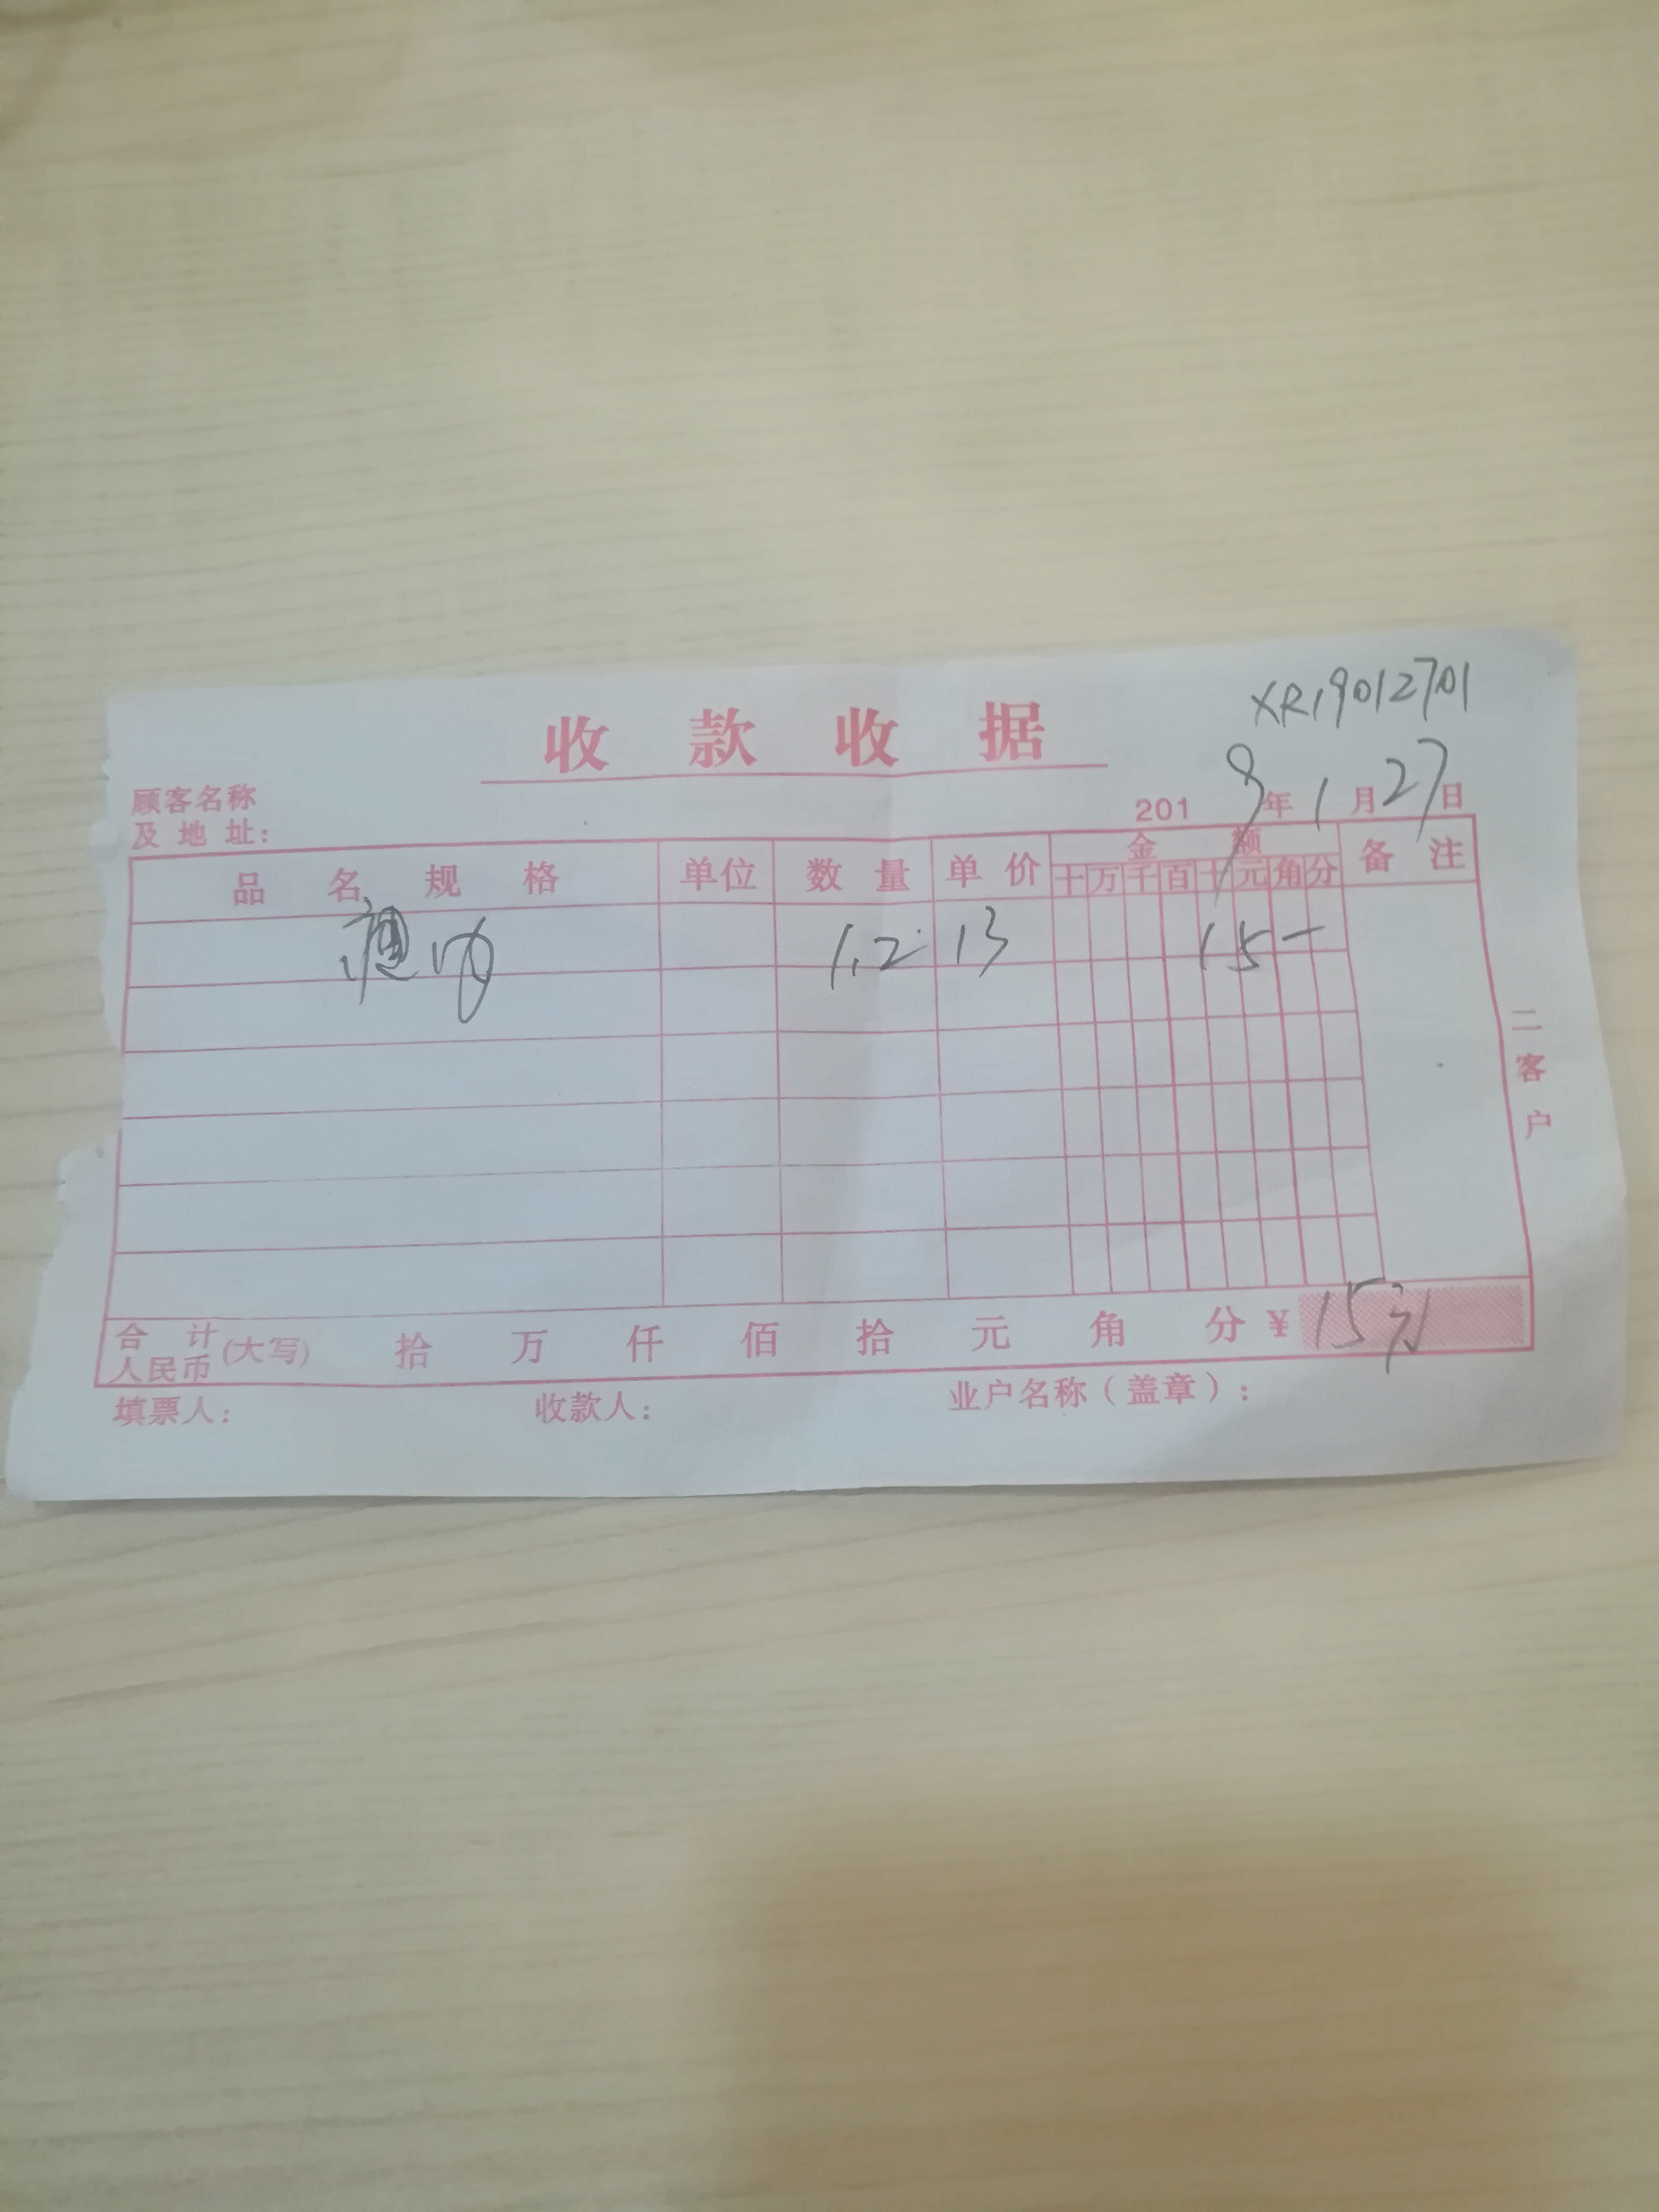 XR19012701
收款收据
顾客名称
及地址：
2019年1月27日
品名规格 单位 数量 单价 金额 备注
十万千百十元角分
1.2 13 15—
二客户
合计
人民币(大写) 拾 万 仟 佰 拾 元 角 分 ¥15元
填票人： 收款人： 业户名称（盖章）：